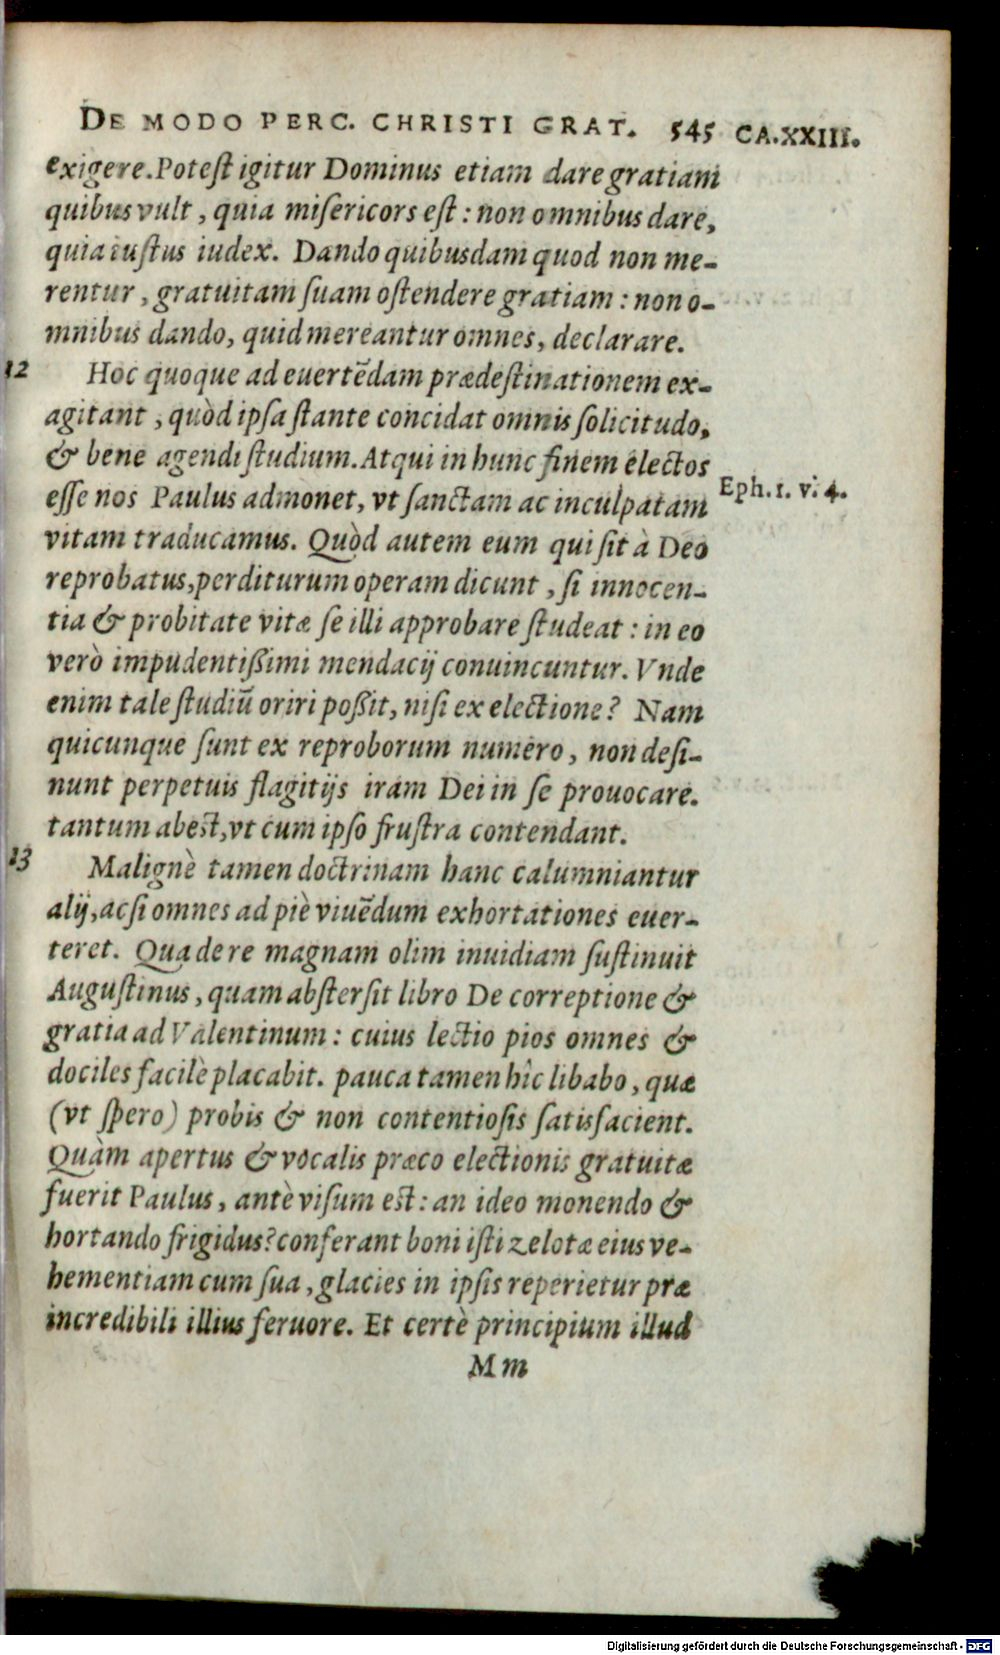 DE MODO PERC. CHRISTI GRAT. 545 CA.XXIII.
exigere. Potest igitur Dominus etiam dare gratiam
quibus vult, quia misericors est: non omnibus dare,
quia iustus iudex. Dando quibusdam quod non me-
rentur, gratuitam suam ostendere gratiam: non o-
mnibus dando, quid mereantur omnes, declarare.
12 Hoc quoque ad euertēdam prædestinationem ex-
agitant, quòd ipsa stante concidat omnis solicitudo,
& bene agendi studium. Atqui in hunc finem electos
esse nos Paulus admonet, vt sanctam ac inculpatam
Eph. 1. v. 4.
vitam traducamus. Quòd autem eum qui sit à Deo
reprobatus, perditurum operam dicunt, si innocen-
tia & probitate vitæ se illi approbare studeat: in eo
verò impudentißimi mendacij conuincuntur. Vnde
enim tale studiū oriri poßit, nisi ex electione? Nam
quicunque sunt ex reproborum numero, non desi-
nunt perpetuis flagitijs iram Dei in se prouocare.
tantum abest, vt cum ipso frustra contendant.
13 Malignè tamen doctrinam hanc calumniantur
alij, ac si omnes ad piè viuēdum exhortationes euer-
teret. Qua de re magnam olim inuidiam sustinuit
Augustinus, quam abstersit libro De correptione &
gratia ad Valentinum: cuius lectio pios omnes &
dociles facilè placabit. pauca tamen hîc libabo, quæ
(vt spero) probis & non contentiosis satisfacient.
Quàm apertus & vocalis præco electionis gratuitæ
fuerit Paulus, antè visum est: an ideo monendo &
hortando frigidus? conferant boni isti zelotæ eius ve-
hementiam cum sua, glacies in ipsis reperietur præ
incredibili illius feruore. Et certè principium illud
M m
Digitalisierung gefördert durch die Deutsche Forschungsgemeinschaft - DFG